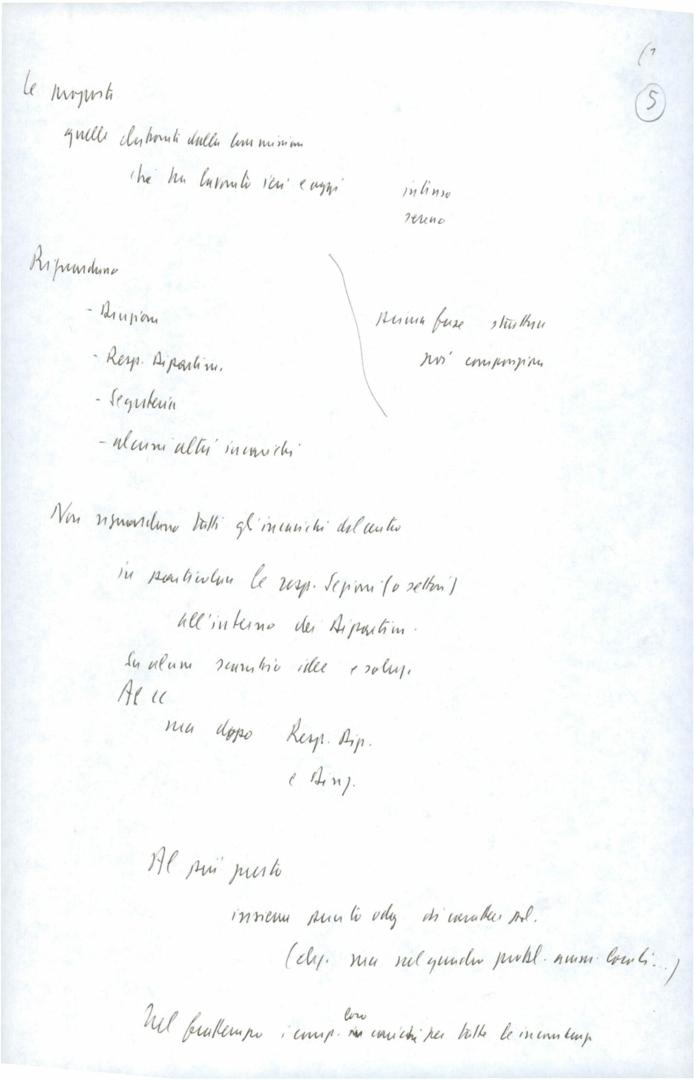 5
Le proposte
quelle
che ha lavorato ieri e oggi intenso
sereno
Riguardano
- Direzione
- Resp. Dipartim.
- Segreteria
- alcuni altri incarichi
prima fase struttura
poi composizione
Non riguardano tutti gli incarichi del centro
in particolare le resp. Sezioni (o settori)
all'interno dei Dipartim.
Su alcuni scambio idee e soluz.
Al CC
ma dopo Resp. Dip.
e Direz.
Al più presto
insieme punto odg di carattere pol.
(... ma nel quadro probl. amm. locali...)
Nel frattempo i comp. loro incarichi per tutte le incombenze